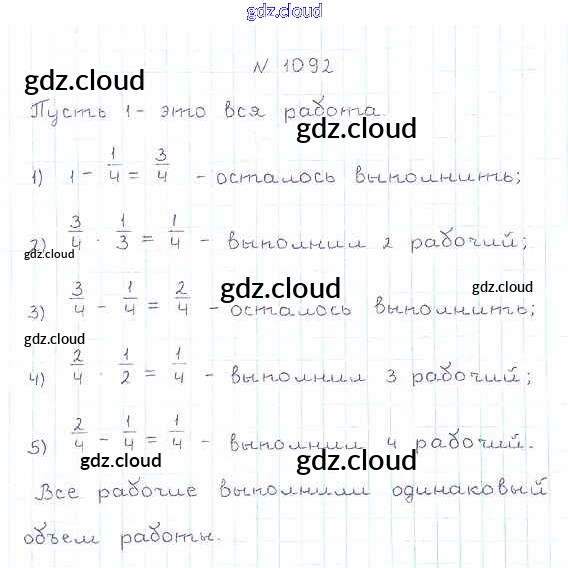 gdz.cloud
N 1092
gdz.cloud
Пусть 1 - это вся работа.
gdz.cloud
1) 1 - 1/4 = 3/4 - осталось выполнить;
2) 3/4 · 1/3 = 1/4 - выполнил 2 рабочий;
gdz.cloud
gdz.cloud gdz.cloud
3) 3/4 - 1/4 = 2/4 - осталось выполнить;
gdz.cloud
4) 2/4 · 1/2 = 1/4 - выполнил 3 рабочий;
gdz.cloud
5) 2/4 - 1/4 = 1/4 - выполнил 4 рабочий.
gdz.cloud gdz.cloud
Все рабочие выполнили одинаковый
объем работы.